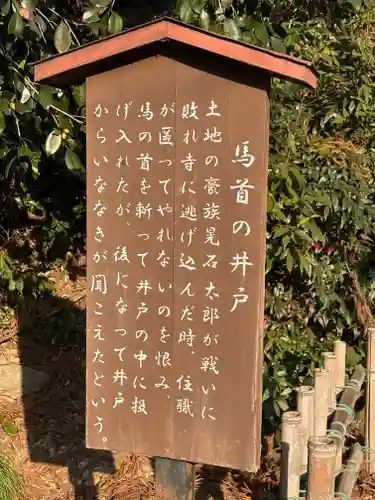 馬首の井戸
土地の豪族晃石太郎が戦いに
敗れ寺に逃げ込んだ時、住職
が匿ってやれないのを恨み、
馬の首を斬って井戸の中に投
げ入れたが、後になって井戸
からいななきが聞こえたという。